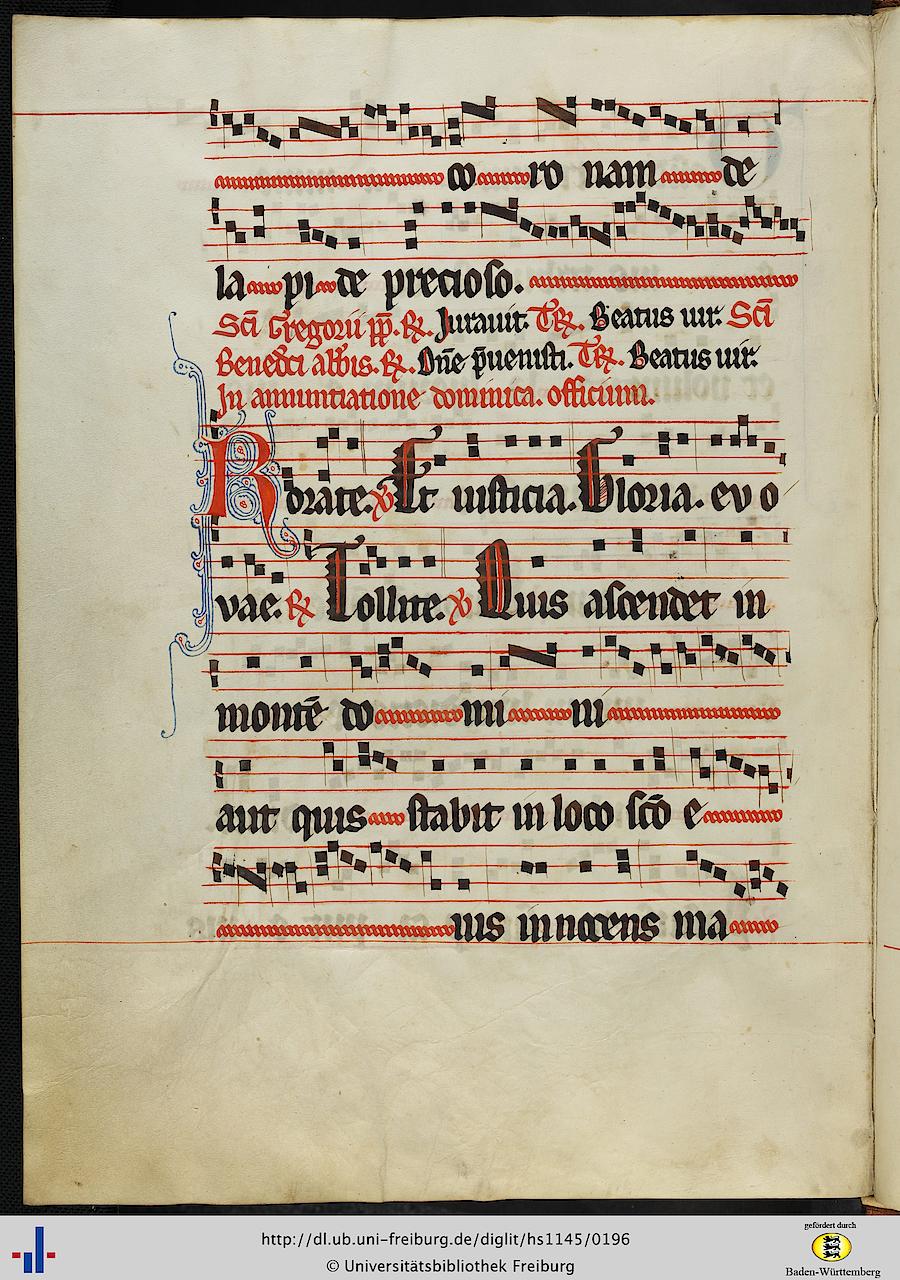 co ro nam de
la pi de precioso.
Sci Gregorii pp. R. Jurauit. TR. Beatus uir. Sci
Benedci abbis. R. Dne puenisti. TR. Beatus uir.
In annuntiatione dominica. officium.
Rorate. V Et iusticia. Gloria. evo
vae. R Tollite. V Quis ascendet in
monte do mi ni
aut quis stabit in loco sco e
ius innocens ma
http://dl.ub.uni-freiburg.de/diglit/hs1145/0196
© Universitätsbibliothek Freiburg
gefördert durch
Baden-Württemberg